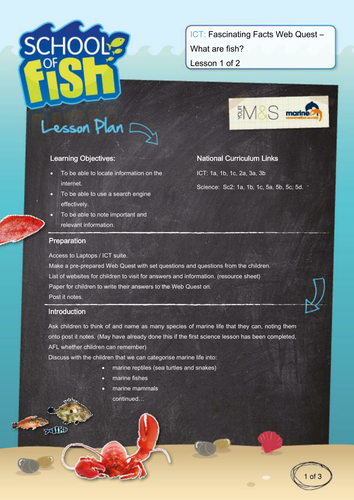 SCHOOL
OF
fish
ICT: Fascinating Facts Web Quest –
What are fish?
Lesson 1 of 2
YOUR
M&S
marine
Lesson Plan
Learning Objectives:
To be able to locate information on the
internet.
To be able to use a search engine
effectively.
To be able to note important and
relevant information.
National Curriculum Links
ICT: 1a, 1b, 1c, 2a, 3a, 3b
Science: Sc2: 1a, 1b, 1c, 5a, 5b, 5c, 5d.
Preparation
Access to Laptops / ICT suite.
Make a pre-prepared Web Quest with set questions and questions from the children.
List of websites for children to visit for answers and information. (resource sheet)
Paper for children to write their answers to the Web Quest on
Post it notes.
Introduction
Ask children to think of and name as many species of marine life that they can, noting them
onto post it notes. (May have already done this if the first science lesson has been completed,
AFL whether children can remember)
Discuss with the children that we can categorise marine life into:
marine reptiles (sea turtles and snakes)
marine fishes
marine mammals
continued…
1 of 3